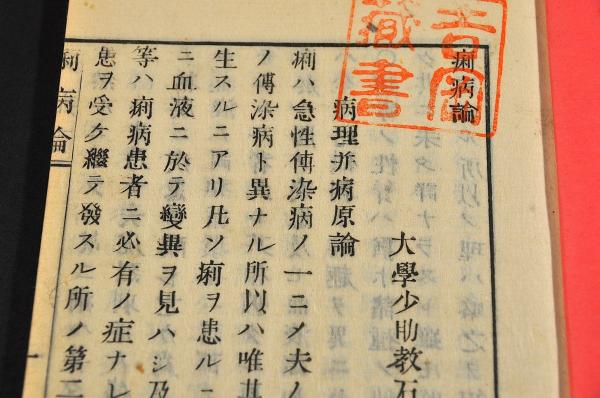 痢病論
大學少助教石
病理并病原論
痢ハ急性傳染病ノ一ニメ夫ノ
ノ傳染病ト異ナル所以ハ唯其
生スルニアリ凡ソ痢ヲ患ルニ
ニ血液ニ於テ變異ヲ見ハシ及
等ハ痢病患者ニ必有ノ症ナレ
患ヲ受ケ繼テ發スル所ノ第二
痢病論
一
藏書